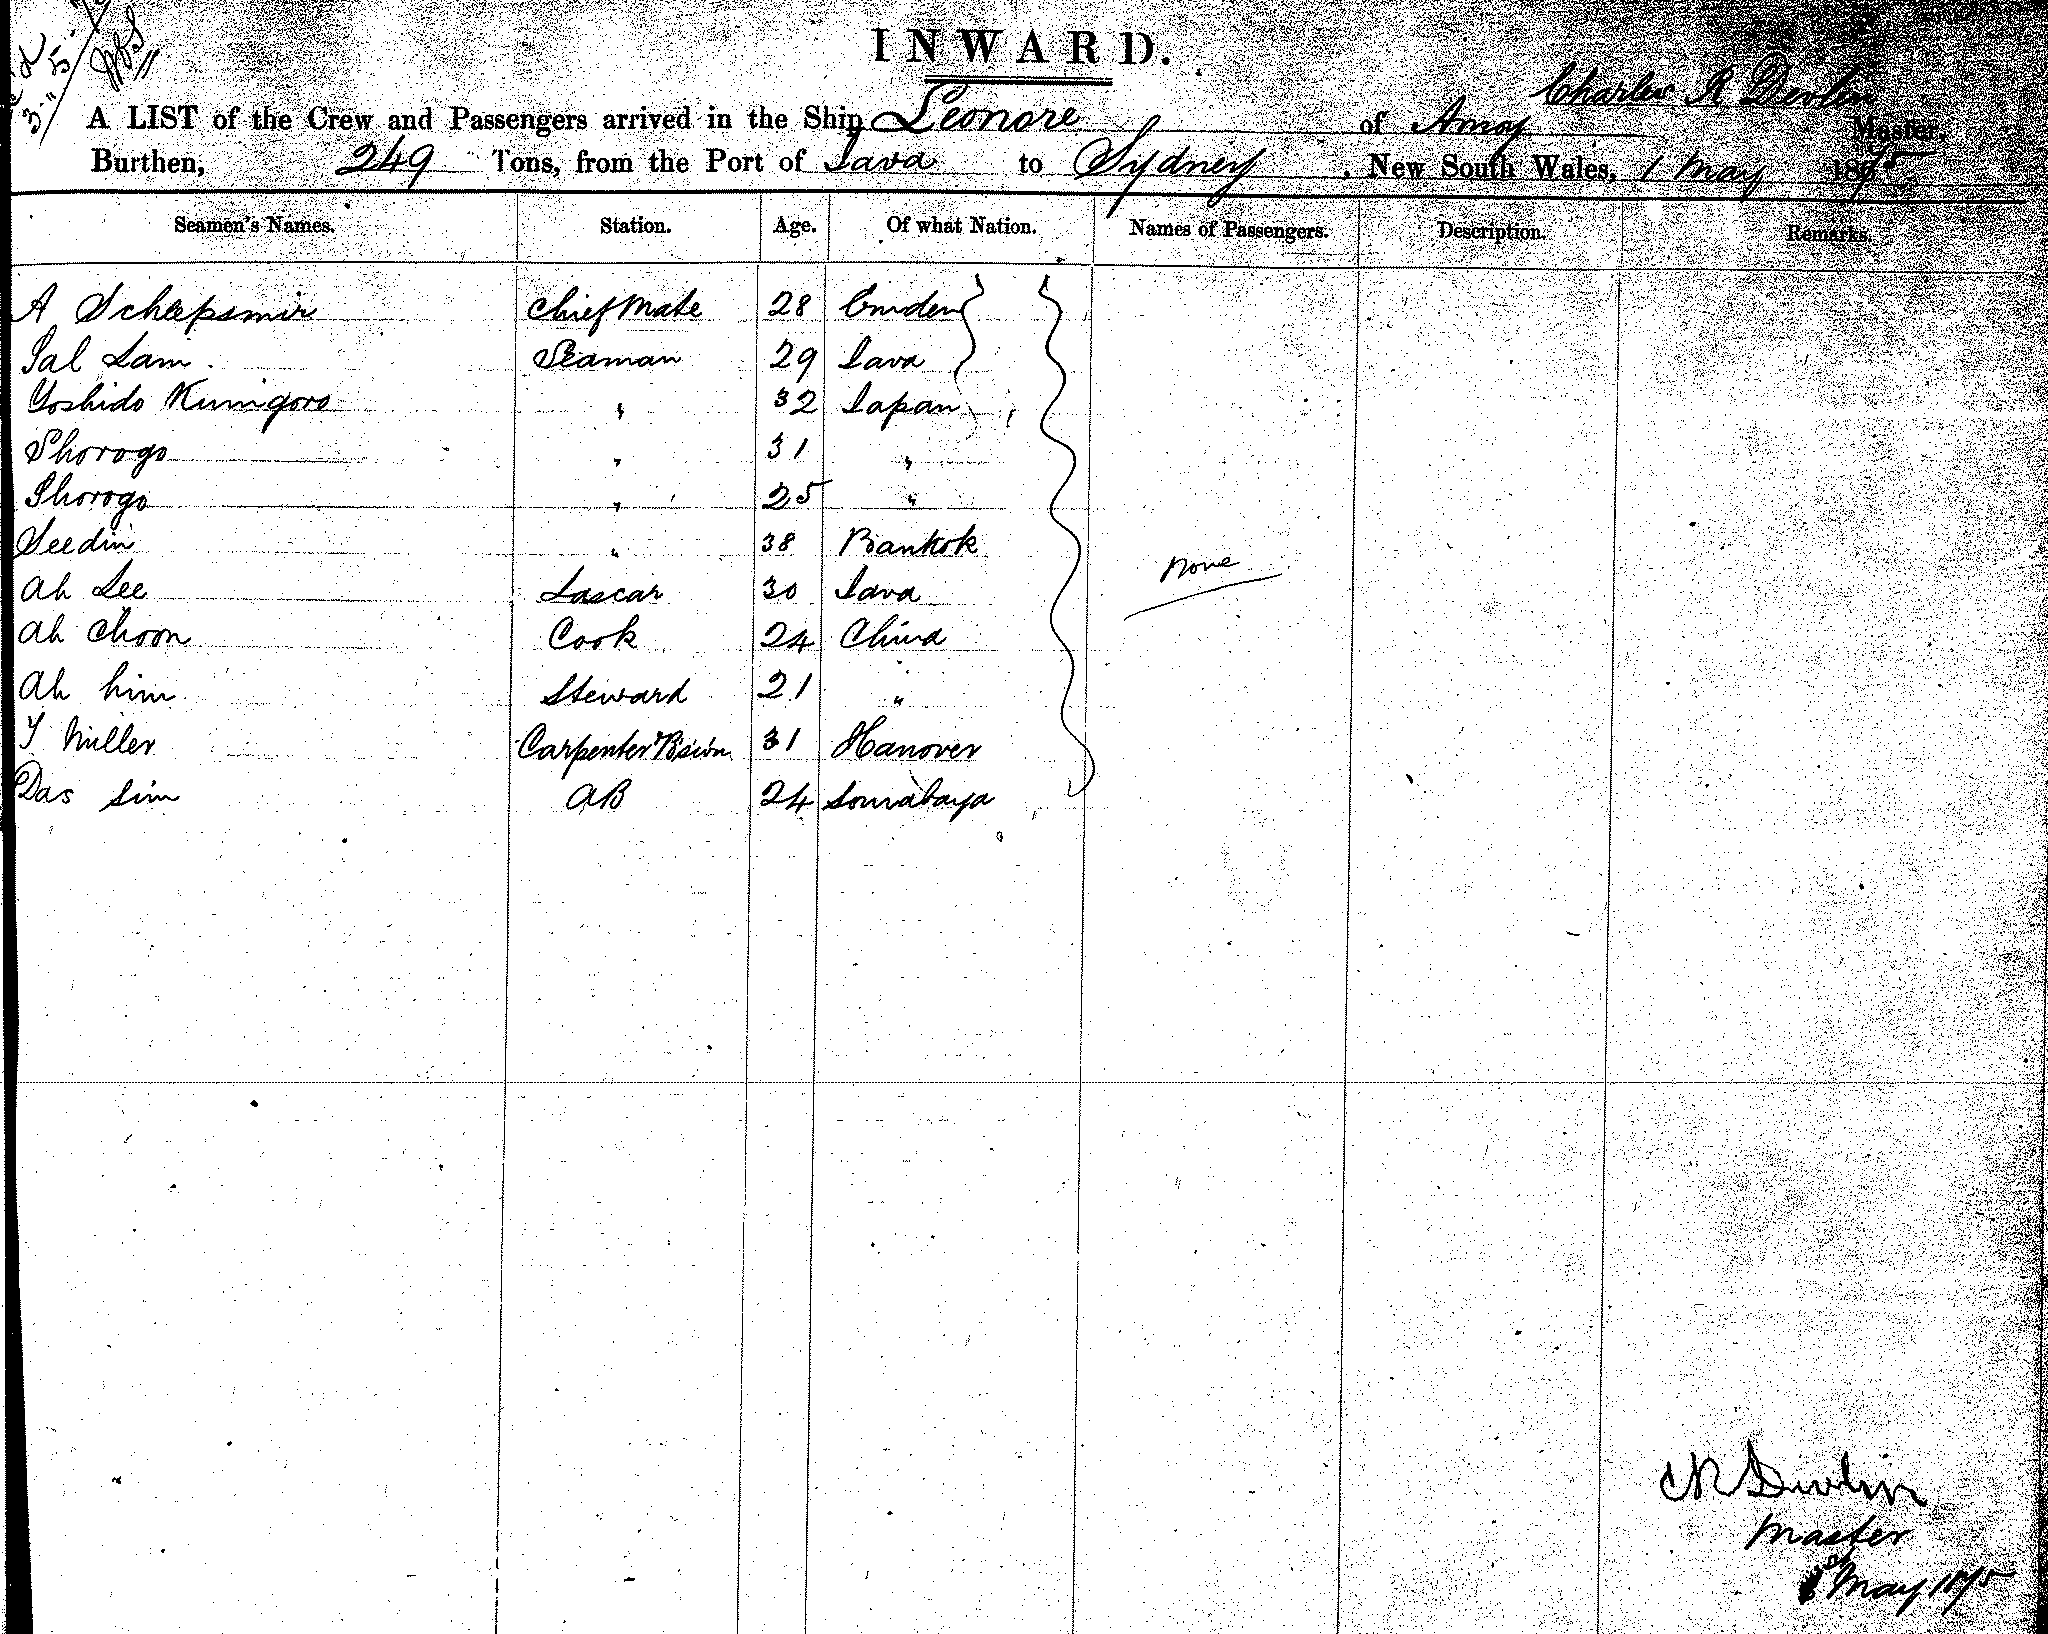 INWARD.
3/5/
Charles R Devlin
A LIST of the Crew and Passengers arrived in the Ship Leonore of Amoy Master,
Burthen, 249 Tons, from the Port of Java to Sydney, New South Wales, 1 May 1875
Seamen's Names. Station. Age. Of what Nation. Names of Passengers. Description. Remarks.
A Schepsmir Chief Mate 28 Emden
Sal Lam Seaman 29 Java
Yoshido Kunigoro " 32 Japan
Shorogo " 31 "
Shorogo " 25 "
Seedin " 38 Bankok
None
Ah Lee Lascar 30 Java
Ah Choon Cook 24 China
Ah him Steward 21 "
Miller Carpenter & Bswn 31 Hanover
Das Sim AB 24 Sourabaya
CR Devlin
Master
May 1875